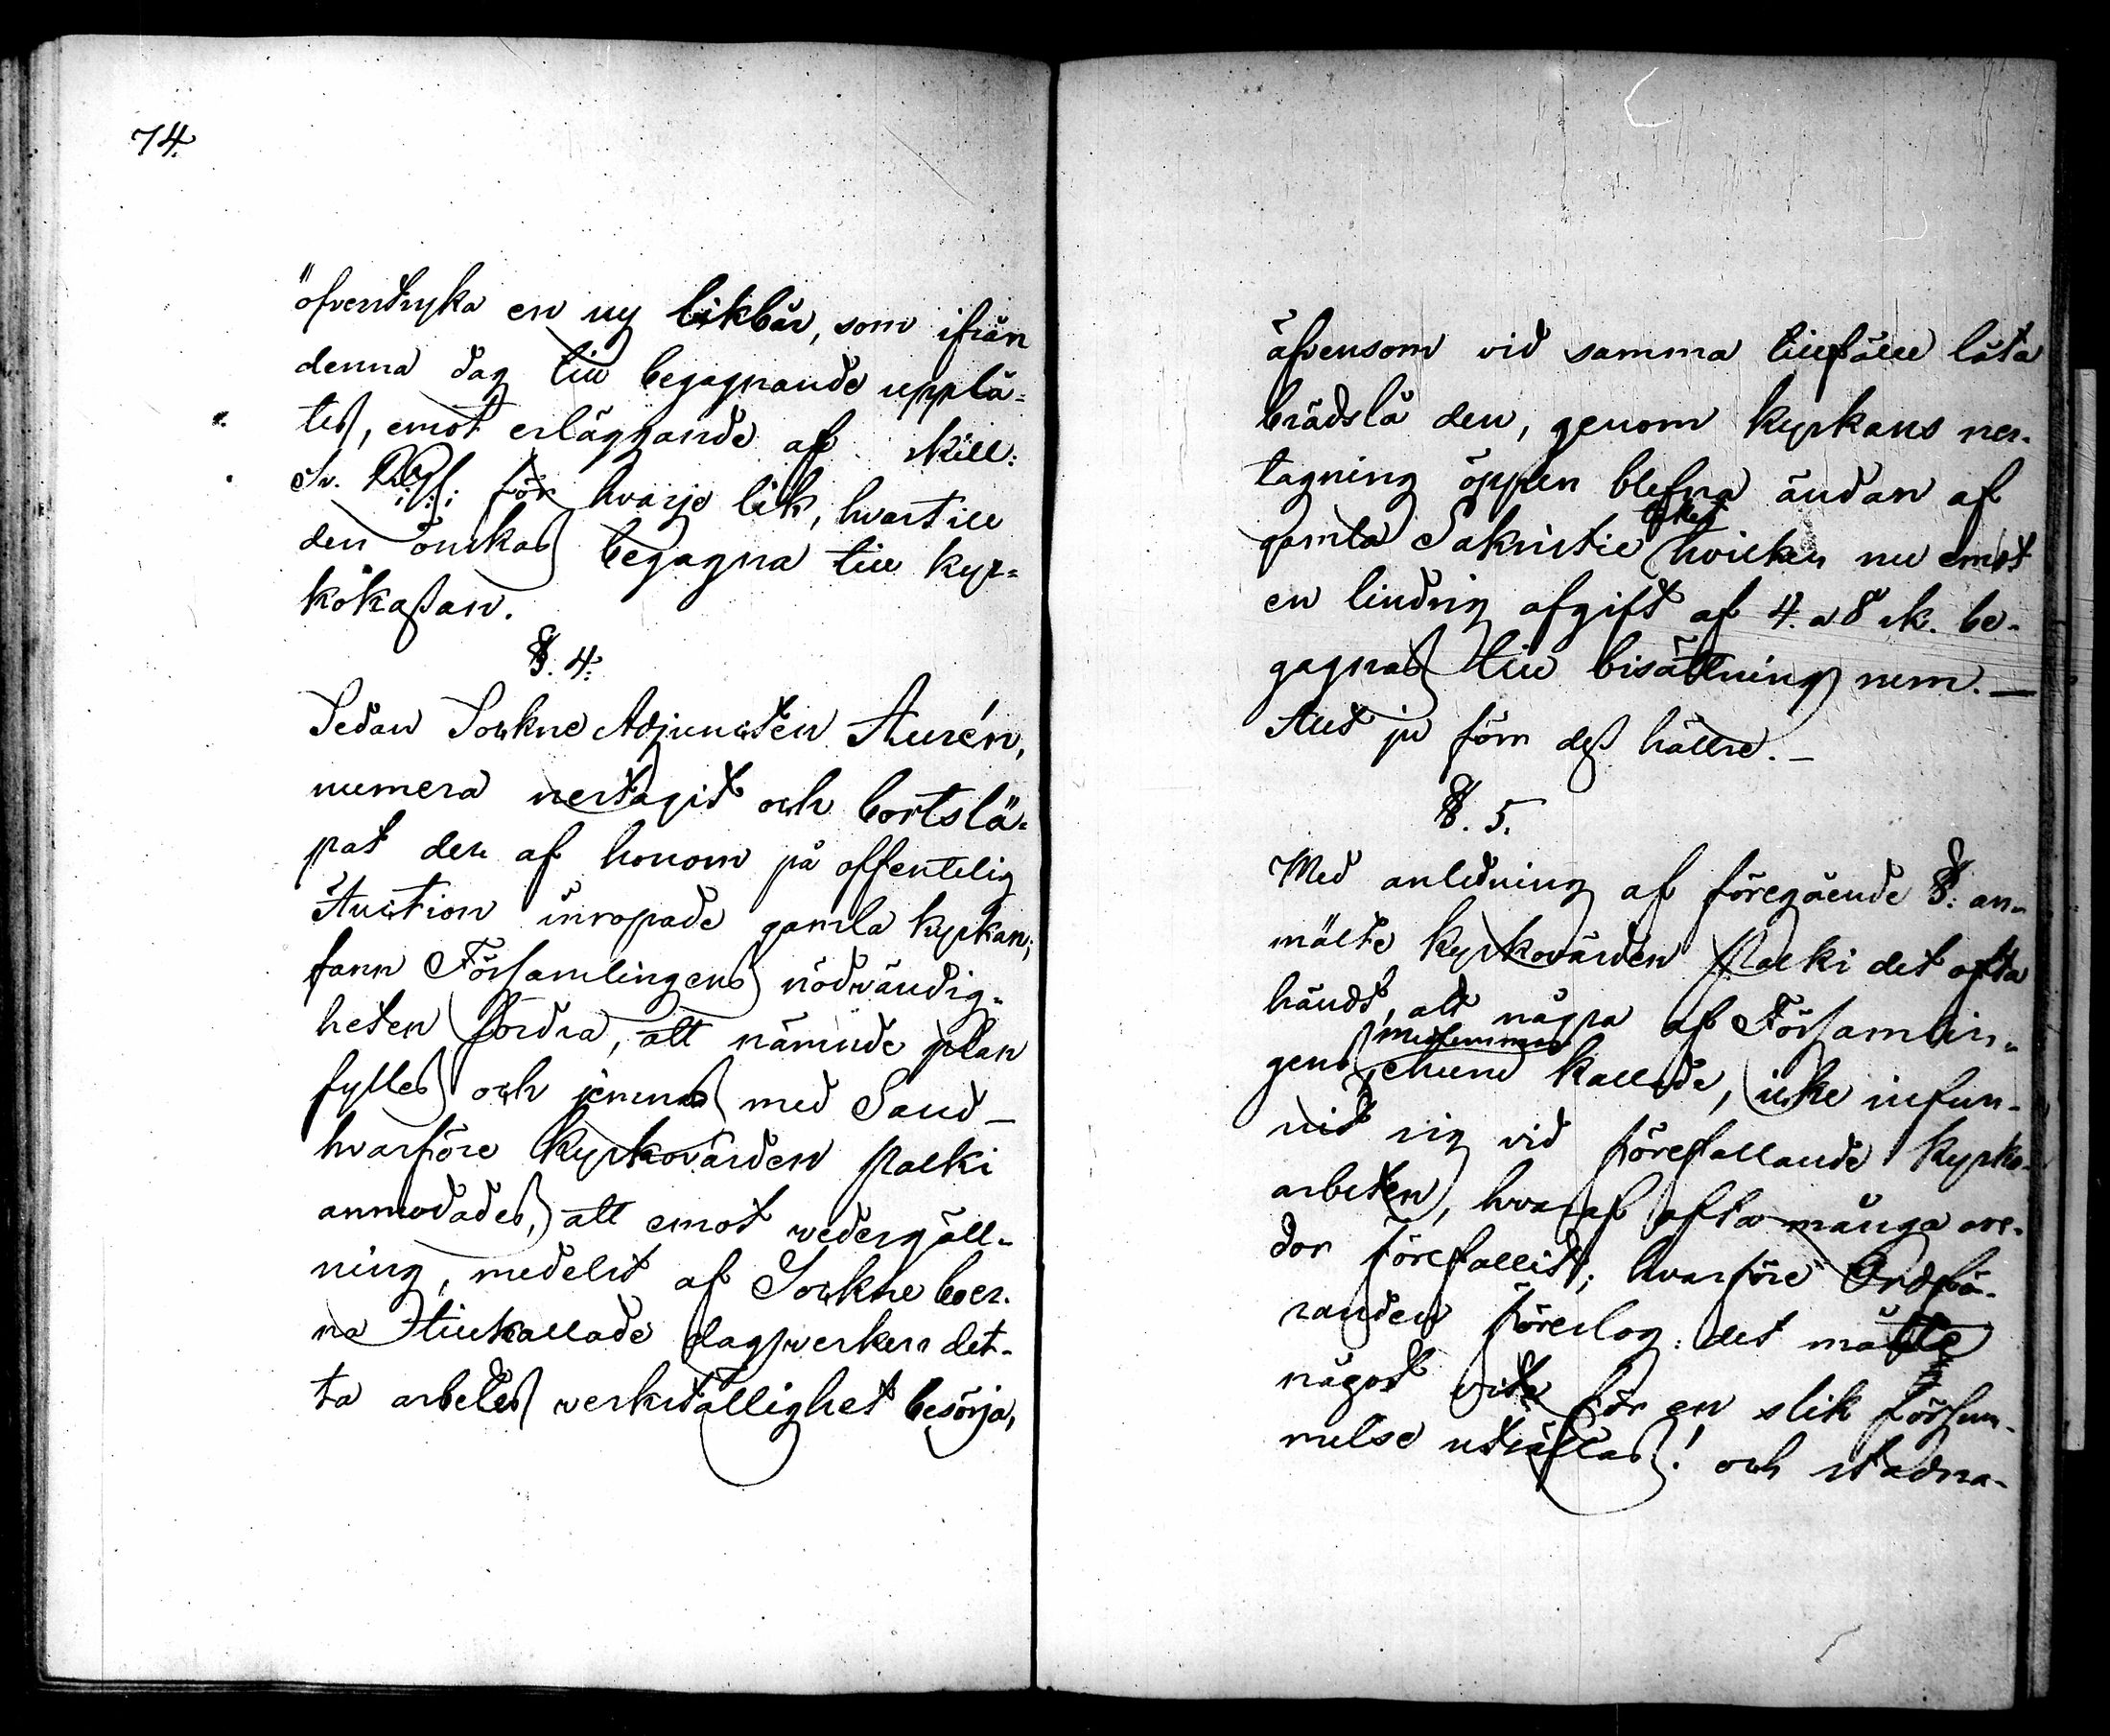 74.
öfverstryka en ny likbår, som ifrån
denna dag till begagnande upplå-
tes, emot erläggande af skill:
Sv. Rgs: för hvarje lik, hvartill
den önskas begagna till kyr-
kokassan.
§. 4.
Sedan Sockne Adjuncten Aurén,
numera nertagit och bortslä-
pat den af honom på offentelig
Auction inropade gamla kyrkan;
fann Församlingens nödvändig-
heten fordra, att nämnde plan
fylles och jemnas med Sand_
hvarföre kyrkovärden Palki
anmodades, att emot vedergäll-
ning, medelst af Sockne boer-
na tillkallade dagsverken det-
ta arbetes verkställighet besörja,
äfvensom vid samma tillfälle låta
brädslå den, genom kyrkans ner-
tagning öppen blefna ändan af
gamla Sakristie hvilken nu emot
en lindrig afgift af 4. a 8 sk. be-
gagnas till bisättnings rum. _
Allt ju förr dess hällre. _
§. 5.
Med anledning af föregående §. an-
mälte kyrkovärden Palki det ofta
händt, att några af Församlin-
gens medlemmar ehuru kallade, icke infun-
nit sig vid förefallande kyrko-
arbeten, hvaraf ofta många ore-
dor förefallit; hvarföre Ordfö-
randen föreslog: det måtte
något vite för en slik försum-
melse utsättas! och stadna-